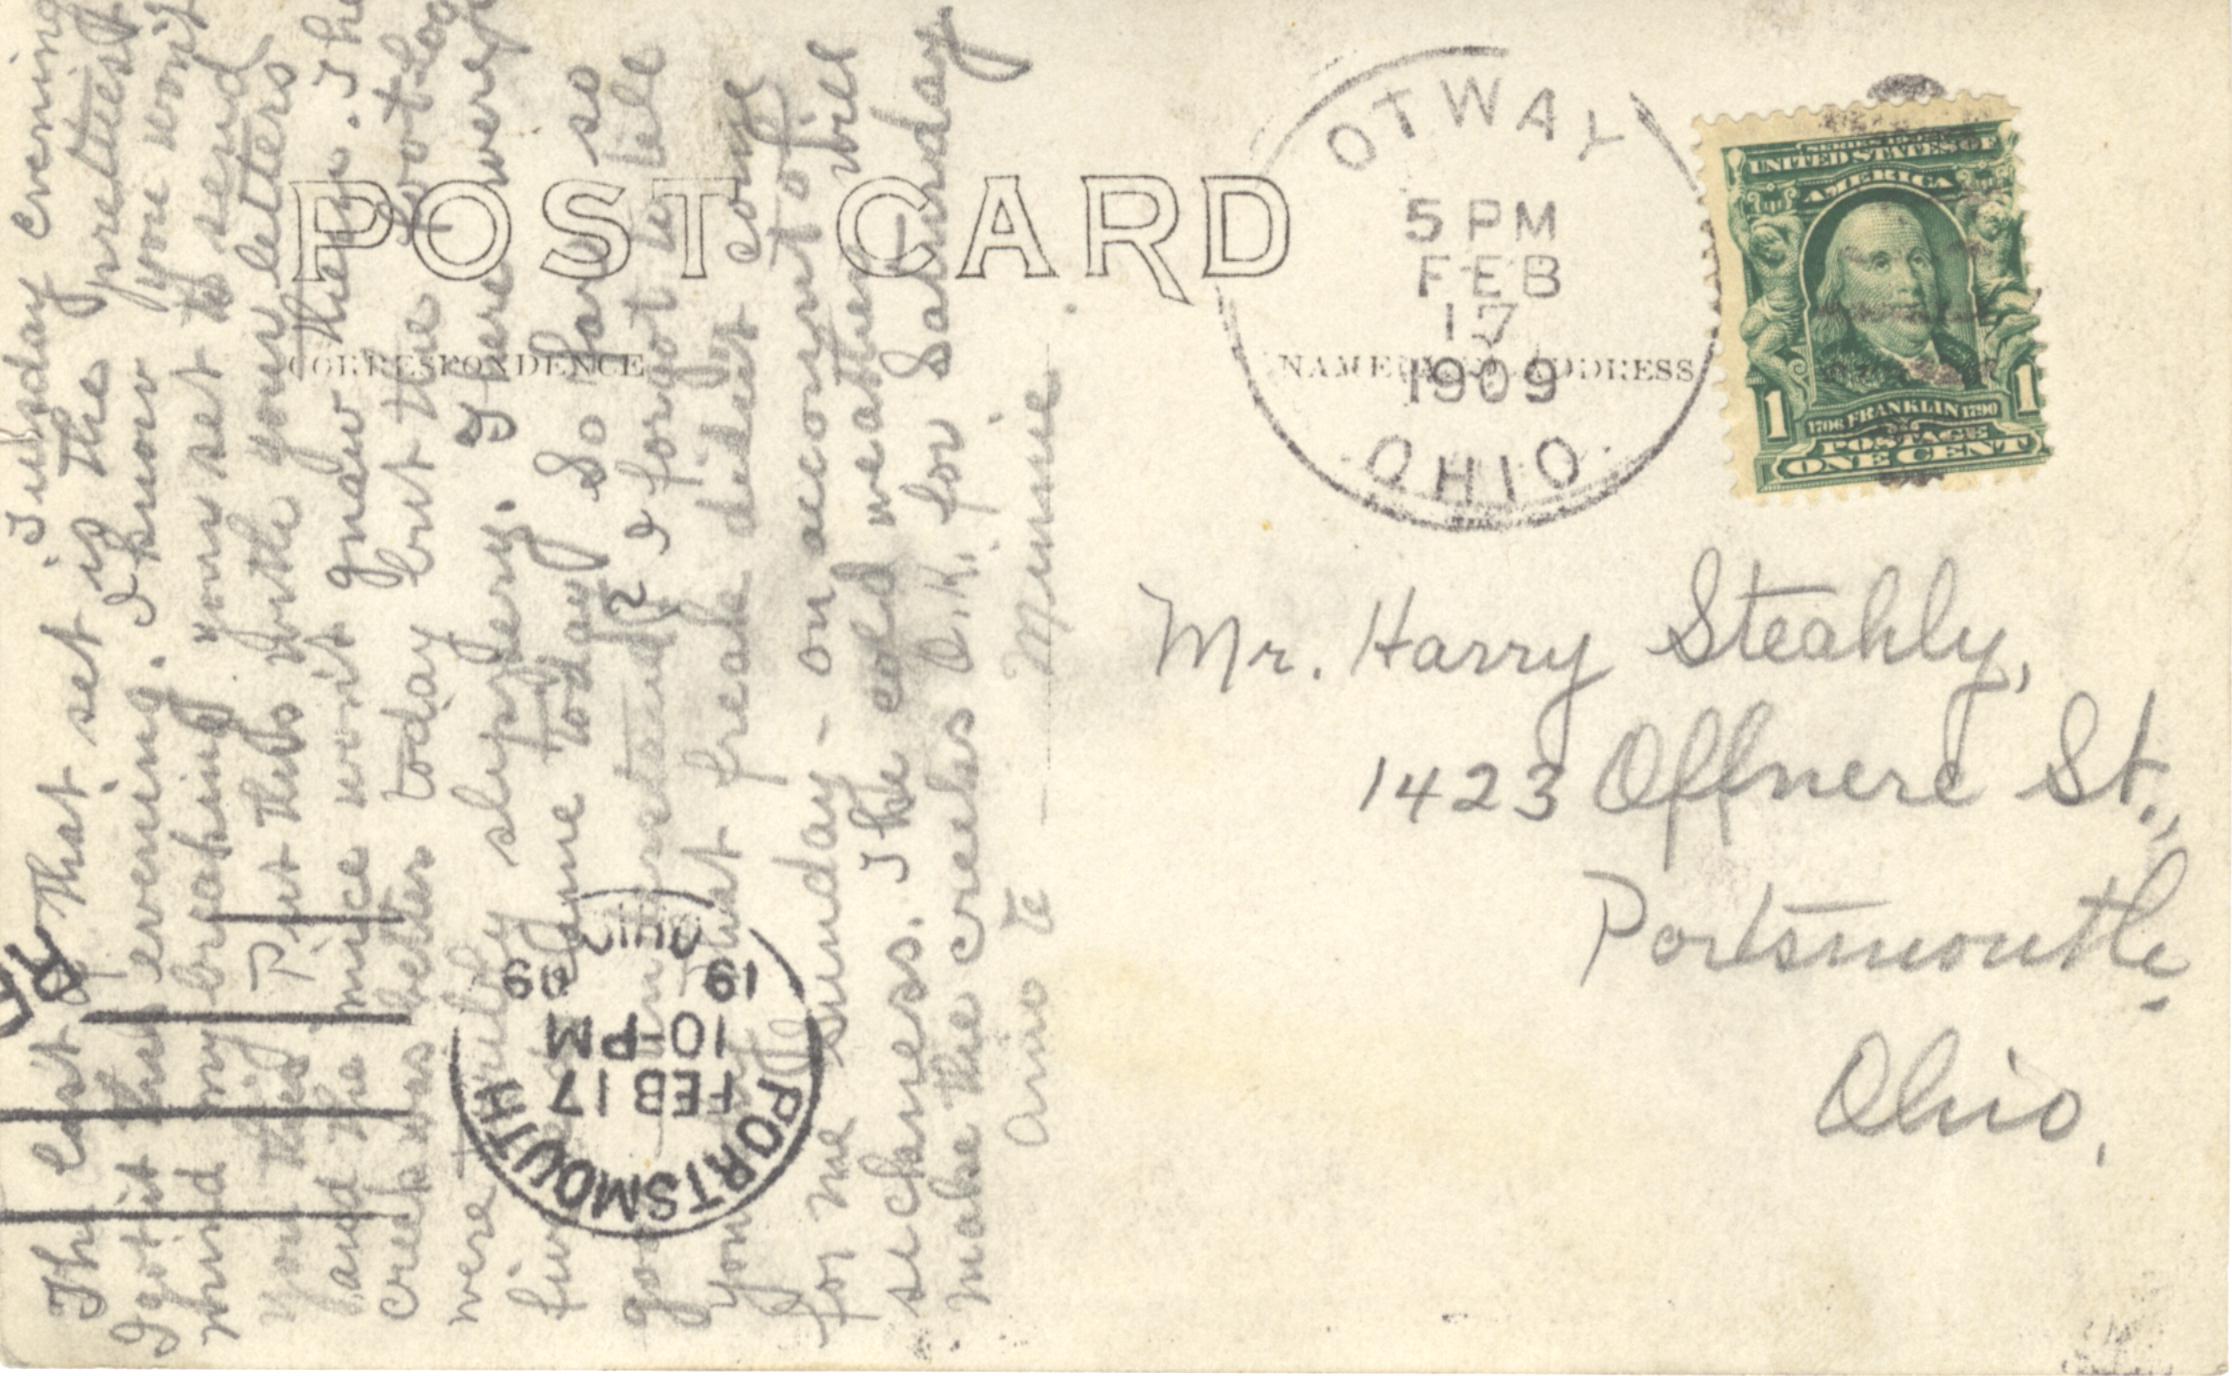 POST CARD
CORRESPONDENCE
NAME AND ADDRESS
OTWAY
5 PM
FEB
17
1909
OHIO
SERIES 1902
UNITED STATES OF
AMERICA
1706 FRANKLIN 1790
POSTAGE
1 ONE CENT 1
Mr. Harry Steahly,
1423 Offnere St.,
Portsmouth,
Ohio.
PORTSMOUTH
FEB 17
10-PM
19 09
OHIO
Tuesday evening
The last of that set is the prettiest
I got it this evening. I know you won't
mind my breaking your set to send
you this. Put this with your letters
and the mice won't gnaw them. The
creek was better today but the foot log
were truly slippery. There were
five came today. So far so
good I forgot to tell
you that freak didn't come
for me Sunday - on account of
sickness. The cold weather will
make the creeks O.K. for Saturday
Minnie